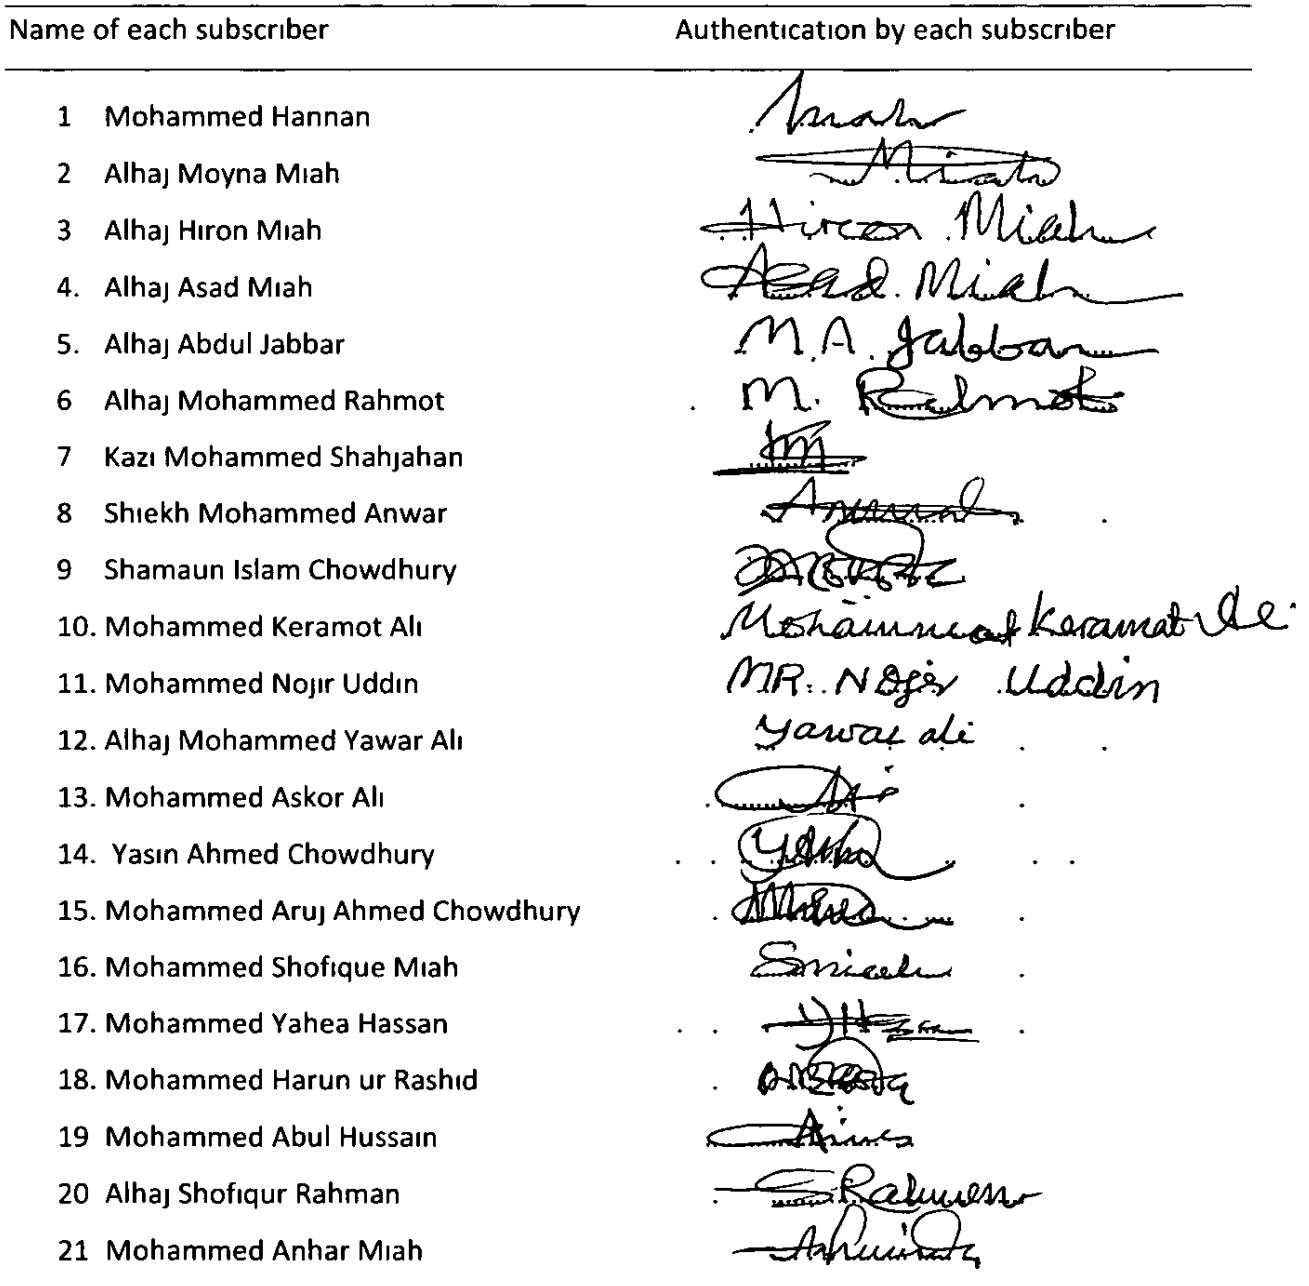 Name of each subscriber Authentication by each subscriber
1 Mohammed Hannan
2 Alhaj Moyna Miah Miah
3 Alhaj Hiron Miah Hiron Miah
4. Alhaj Asad Miah Asad Miah
5. Alhaj Abdul Jabbar M.A. Jabbar
6 Alhaj Mohammed Rahmot M. Rahmot
7 Kazi Mohammed Shahjahan
8 Shiekh Mohammed Anwar
9 Shamaun Islam Chowdhury
10. Mohammed Keramot Ali Mohammed Keramat Ali
11. Mohammed Nojir Uddin MR. Nojir Uddin
12. Alhaj Mohammed Yawar Ali Yawar ali
13. Mohammed Askor Ali
14. Yasin Ahmed Chowdhury
15. Mohammed Aruj Ahmed Chowdhury
16. Mohammed Shofique Miah Smiah
17. Mohammed Yahea Hassan
18. Mohammed Harun ur Rashid
19 Mohammed Abul Hussain
20 Alhaj Shofiqur Rahman S Rahman
21 Mohammed Anhar Miah